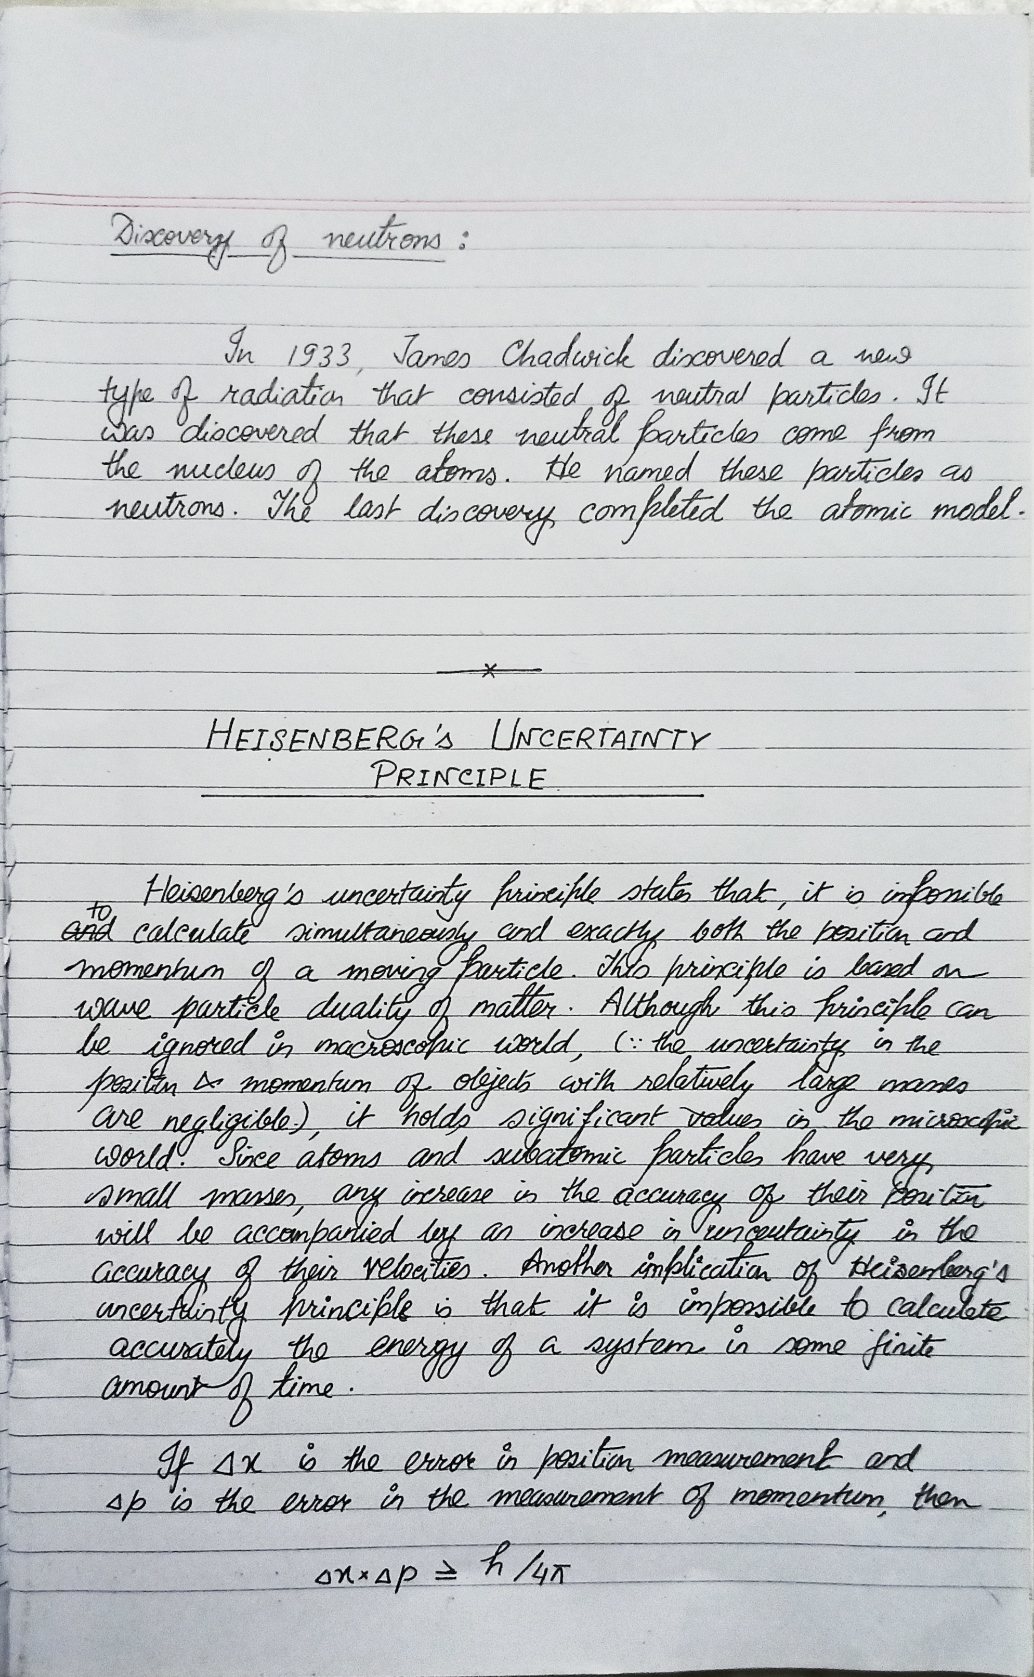 Discovery of neutrons :
In 1933, James Chadwick discovered a new
type of radiation that consisted of neutral particles. It
was discovered that these neutral particles come from
the nucleus of the atoms. He named these particles as
neutrons. The last discovery completed the atomic model.
x
HEISENBERG's UNCERTAINTY
PRINCIPLE
Heisenberg's uncertainty principle states that, it is impossible
to
and calculate simultaneously and exactly both the position and
momentum of a moving particle. This principle is based on
wave particle duality of matter. Although this principle can
be ignored in macroscopic world, (∵ the uncertainty in the
position & momentum of objects with relatively large masses
are negligible.), it holds significant values in the microscopic
world. Since atoms and subatomic particles have very
small masses, any increase in the accuracy of their position
will be accompanied by an increase in uncertainty in the
accuracy of their velocities. Another implication of Heisenberg's
uncertainty principle is that it is impossible to calculate
accurately the energy of a system in some finite
amount of time.
If Δx is the error in position measurement and
Δp is the error in the measurement of momentum, then
Δx × Δp ≥ h/4π